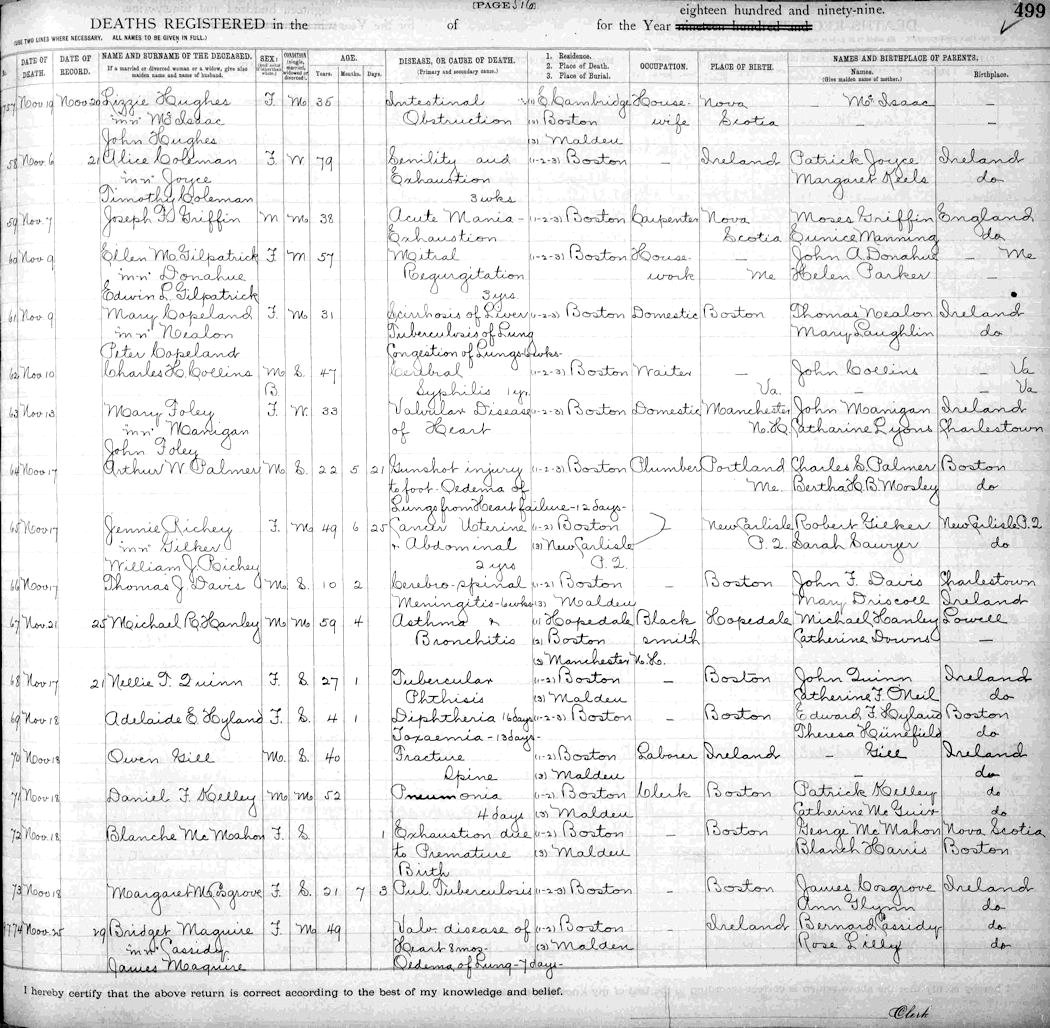 (PAGE 516)
eighteen hundred and ninety-nine.
499
DEATHS REGISTERED in the of for the Year nineteen hundred and
(USE TWO LINES WHERE NECESSARY. ALL NAMES TO BE GIVEN IN FULL.)
DATE OF DEATH. DATE OF RECORD. NAME AND SURNAME OF THE DECEASED. SEX: CONDITION AGE. DISEASE, OR CAUSE OF DEATH. 1. Residence. OCCUPATION. PLACE OF BIRTH. NAMES AND BIRTHPLACE OF PARENTS.
If a married or divorced woman or a widow, give also maiden name and name of husband. Years. Months. Days. (Primary and secondary cause.) 2. Place of Death. Names. Birthplace.
3. Place of Burial. (Give maiden name of mother.)
57 Nov 19 Nov 20 Lizzie Hughes F. M 35 Intestinal (1) E. Cambridge House- Nova – McIsaac –
"mn" McIsaac Obstruction (2) Boston wife Scotia – – –
John Hughes (3) Malden
58 Nov 6 21 Alice Coleman F. W 79 Senility and (1-2-3) Boston – Ireland Patrick Joyce Ireland
"mn" Joyce Exhaustion Margaret Keels do
Timothy Coleman 3 wks
59 Nov. 7 Joseph F. Griffin M M 38 Acute Mania- (1-2-3) Boston Carpenter Nova Moses Griffin England
Exhaustion Scotia Eunice Manning do
60 Nov 9 Ellen M. Gilpatrick F M 57 Mitral (1-2-3) Boston House- – John A. Donahue – Me
"mn" Donahue Regurgitation work Me Helen Parker –
Edwin L. Gilpatrick 3 yrs.
61 Nov 9 Mary Copeland F. M 31 Scirrhosis of Liver (1-2-3) Boston Domestic Boston Thomas Nealon Ireland
"mn" Nealon Tuberculosis of Lung Mary Laughlin do
Peter Copeland Congestion of Lungs-6 wks-
62 Nov 10 Charles H. Collins M S. 47 Cerebral (1-2-3) Boston Waiter – John Collins – Va
B. Syphilis 1 yr. Va. – – Va
63 Nov 13 Mary Foley F. W. 33 Valvular Disease (1-2-3) Boston Domestic Manchester John Manigan Ireland
"mn" Manigan of Heart N.H. Catharine Lyons Charlestown
John Foley
64 Nov 17 Arthur W. Palmer M. S. 22 5 21 Gunshot injury (1-2-3) Boston Plumber Portland Charles S. Palmer Boston
to foot- Oedema of Me. Bertha H. B. Mosley do
Lungs from Heart failure-12 days-
65 Nov 17 Jennie Richey F. M 49 6 25 Cancer Uterine (1-2) Boston New Carlisle Robert Gilker New Carlisle P.2.
"mn" Gilker & Abdominal (3) New Carlisle P.2. Sarah Sawyer do
William J. Richey 2 yrs P.2.
66 Nov 17 Thomas J. Davis M. S. 10 2 Cerebro-spinal (1-2) Boston – Boston John F. Davis Charlestown
Meningitis-6 wks (3) Malden Mary Driscoll Ireland
67 Nov. 21 25 Michael R. Hanley M M 59 4 Asthma & (1) Hopedale Black Hopedale Michael Hanley Lowell
Bronchitis (2) Boston smith Catherine Downs –
(3) Manchester N.H.
68 Nov 17 21 Nellie T. Quinn F. S. 27 1 Tubercular (1-2) Boston – Boston John Quinn Ireland
Phthisis (3) Malden Catherine F. O'Neil do
69 Nov 18 Adelaide E. Hyland F. S. 4 1 Diphtheria 16 days (1-2-3) Boston – Boston Edward F. Hyland Boston
Toxaemia-13 days- Theresa Hünefeld do
70 Nov 18 Owen Gill M. S. 40 Fracture (1-2) Boston Laborer Ireland – Gill Ireland
Spine (3) Malden – do
71 Nov 18 Daniel F. Kelley M M 52 Pneumonia (1-2) Boston Clerk Boston Patrick Kelley do
4 days (3) Malden Catherine McGuir do
72 Nov. 18 Blanche McMahon F. S. 1 Exhaustion due (1-2) Boston – Boston George McMahon Nova Scotia
to Premature (3) Malden Blanch Harris Boston
Birth
73 Nov 18 Margaret M. Cosgrove F. S. 21 7 3 Pul. Tuberculosis (1-2-3) Boston – Boston James Cosgrove Ireland
Ann Glynn do
74 Nov. 25 29 Bridget Maguire F. M 49 Valv. disease of (1-2) Boston – Ireland Bernard Cassidy do
"mn" Cassidy Heart 8 mos- (3) Malden Rose Lilly do
James Maguire Oedema of Lung-7 days-
I hereby certify that the above return is correct according to the best of my knowledge and belief.
Clerk